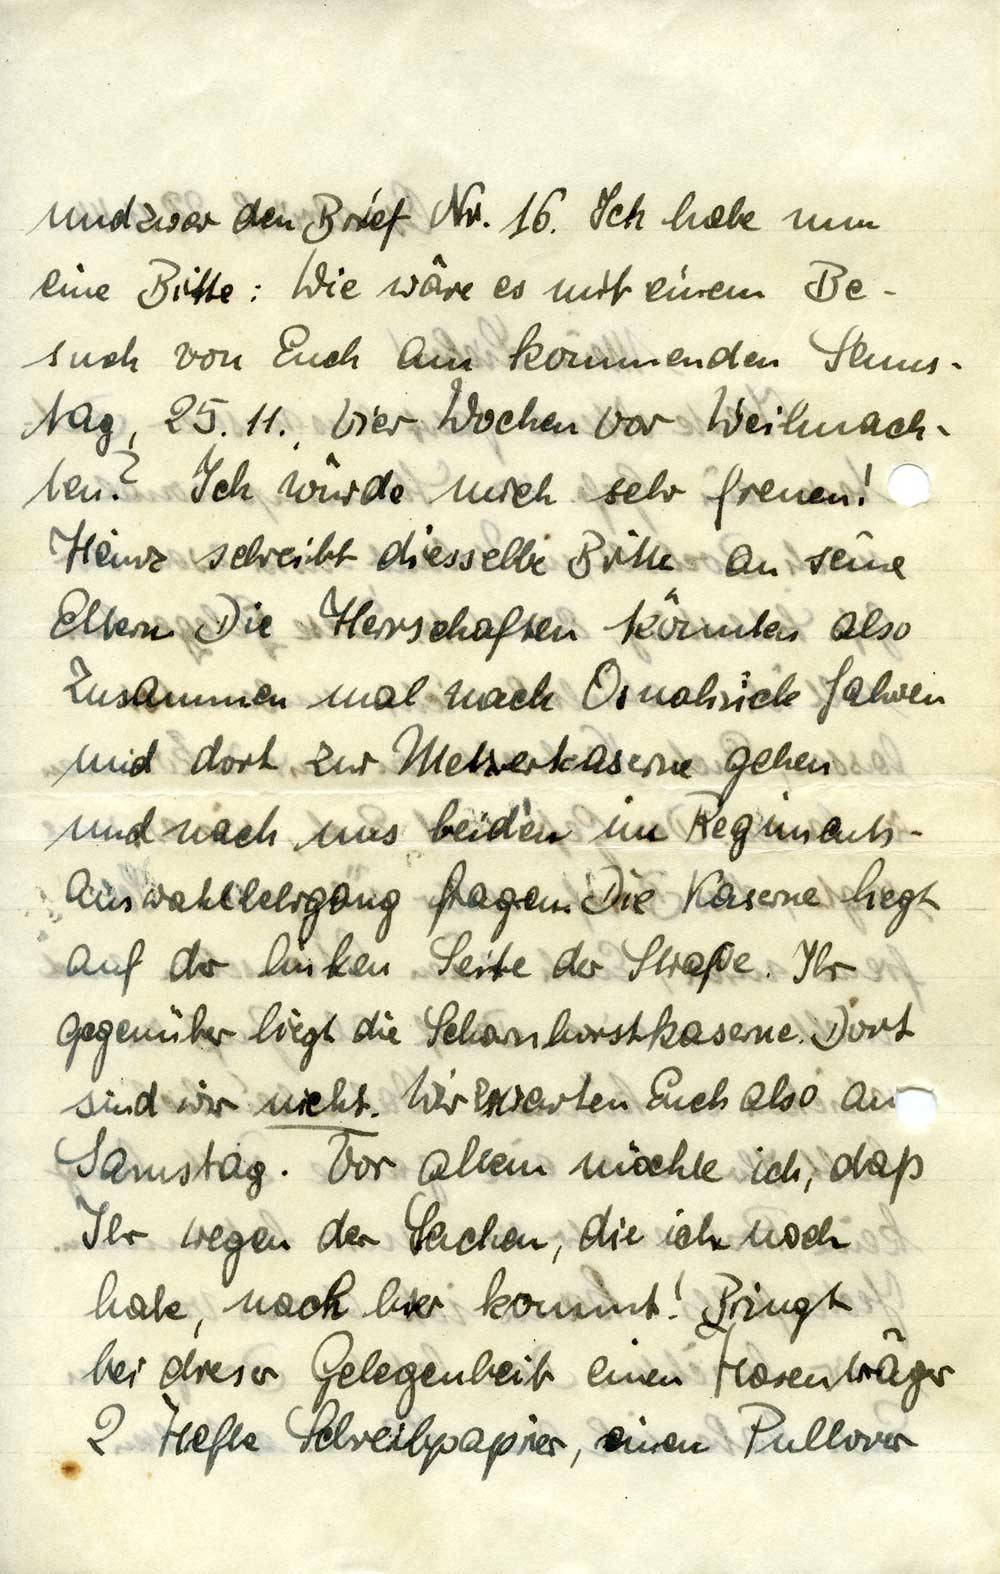 und zwar den Brief Nr. 16. Ich habe nun
eine Bitte: Wie wäre es mit einem Be-
such von Euch am kommenden Sams-
tag, 25. 11., vier Wochen vor Weihnach-
ten? Ich würde mich sehr freuen!
Heinz schreibt diesselbe Bitte an seine
Eltern Die Herrschaften könnten also
zusammen mal nach Osnabrück fahren
und dort zur Metzerkaserne gehen
und nach uns beiden im Regiments-
auswahllehrgang fragen. Die Kaserne liegt
auf der linken Seite der Straße. Ihr
gegenüber liegt die Scharnhorstkaserne. Dort
sind wir nicht. Wir erwarten Euch also am
Samstag. Vor allem möchte ich, daß
Ihr wegen der Sachen, die ich noch
habe, nach hier kommt! Bringt
bei dieser Gelegenheit einen Hosenträger
2 Hefte Schreibpapier, einen Pullover